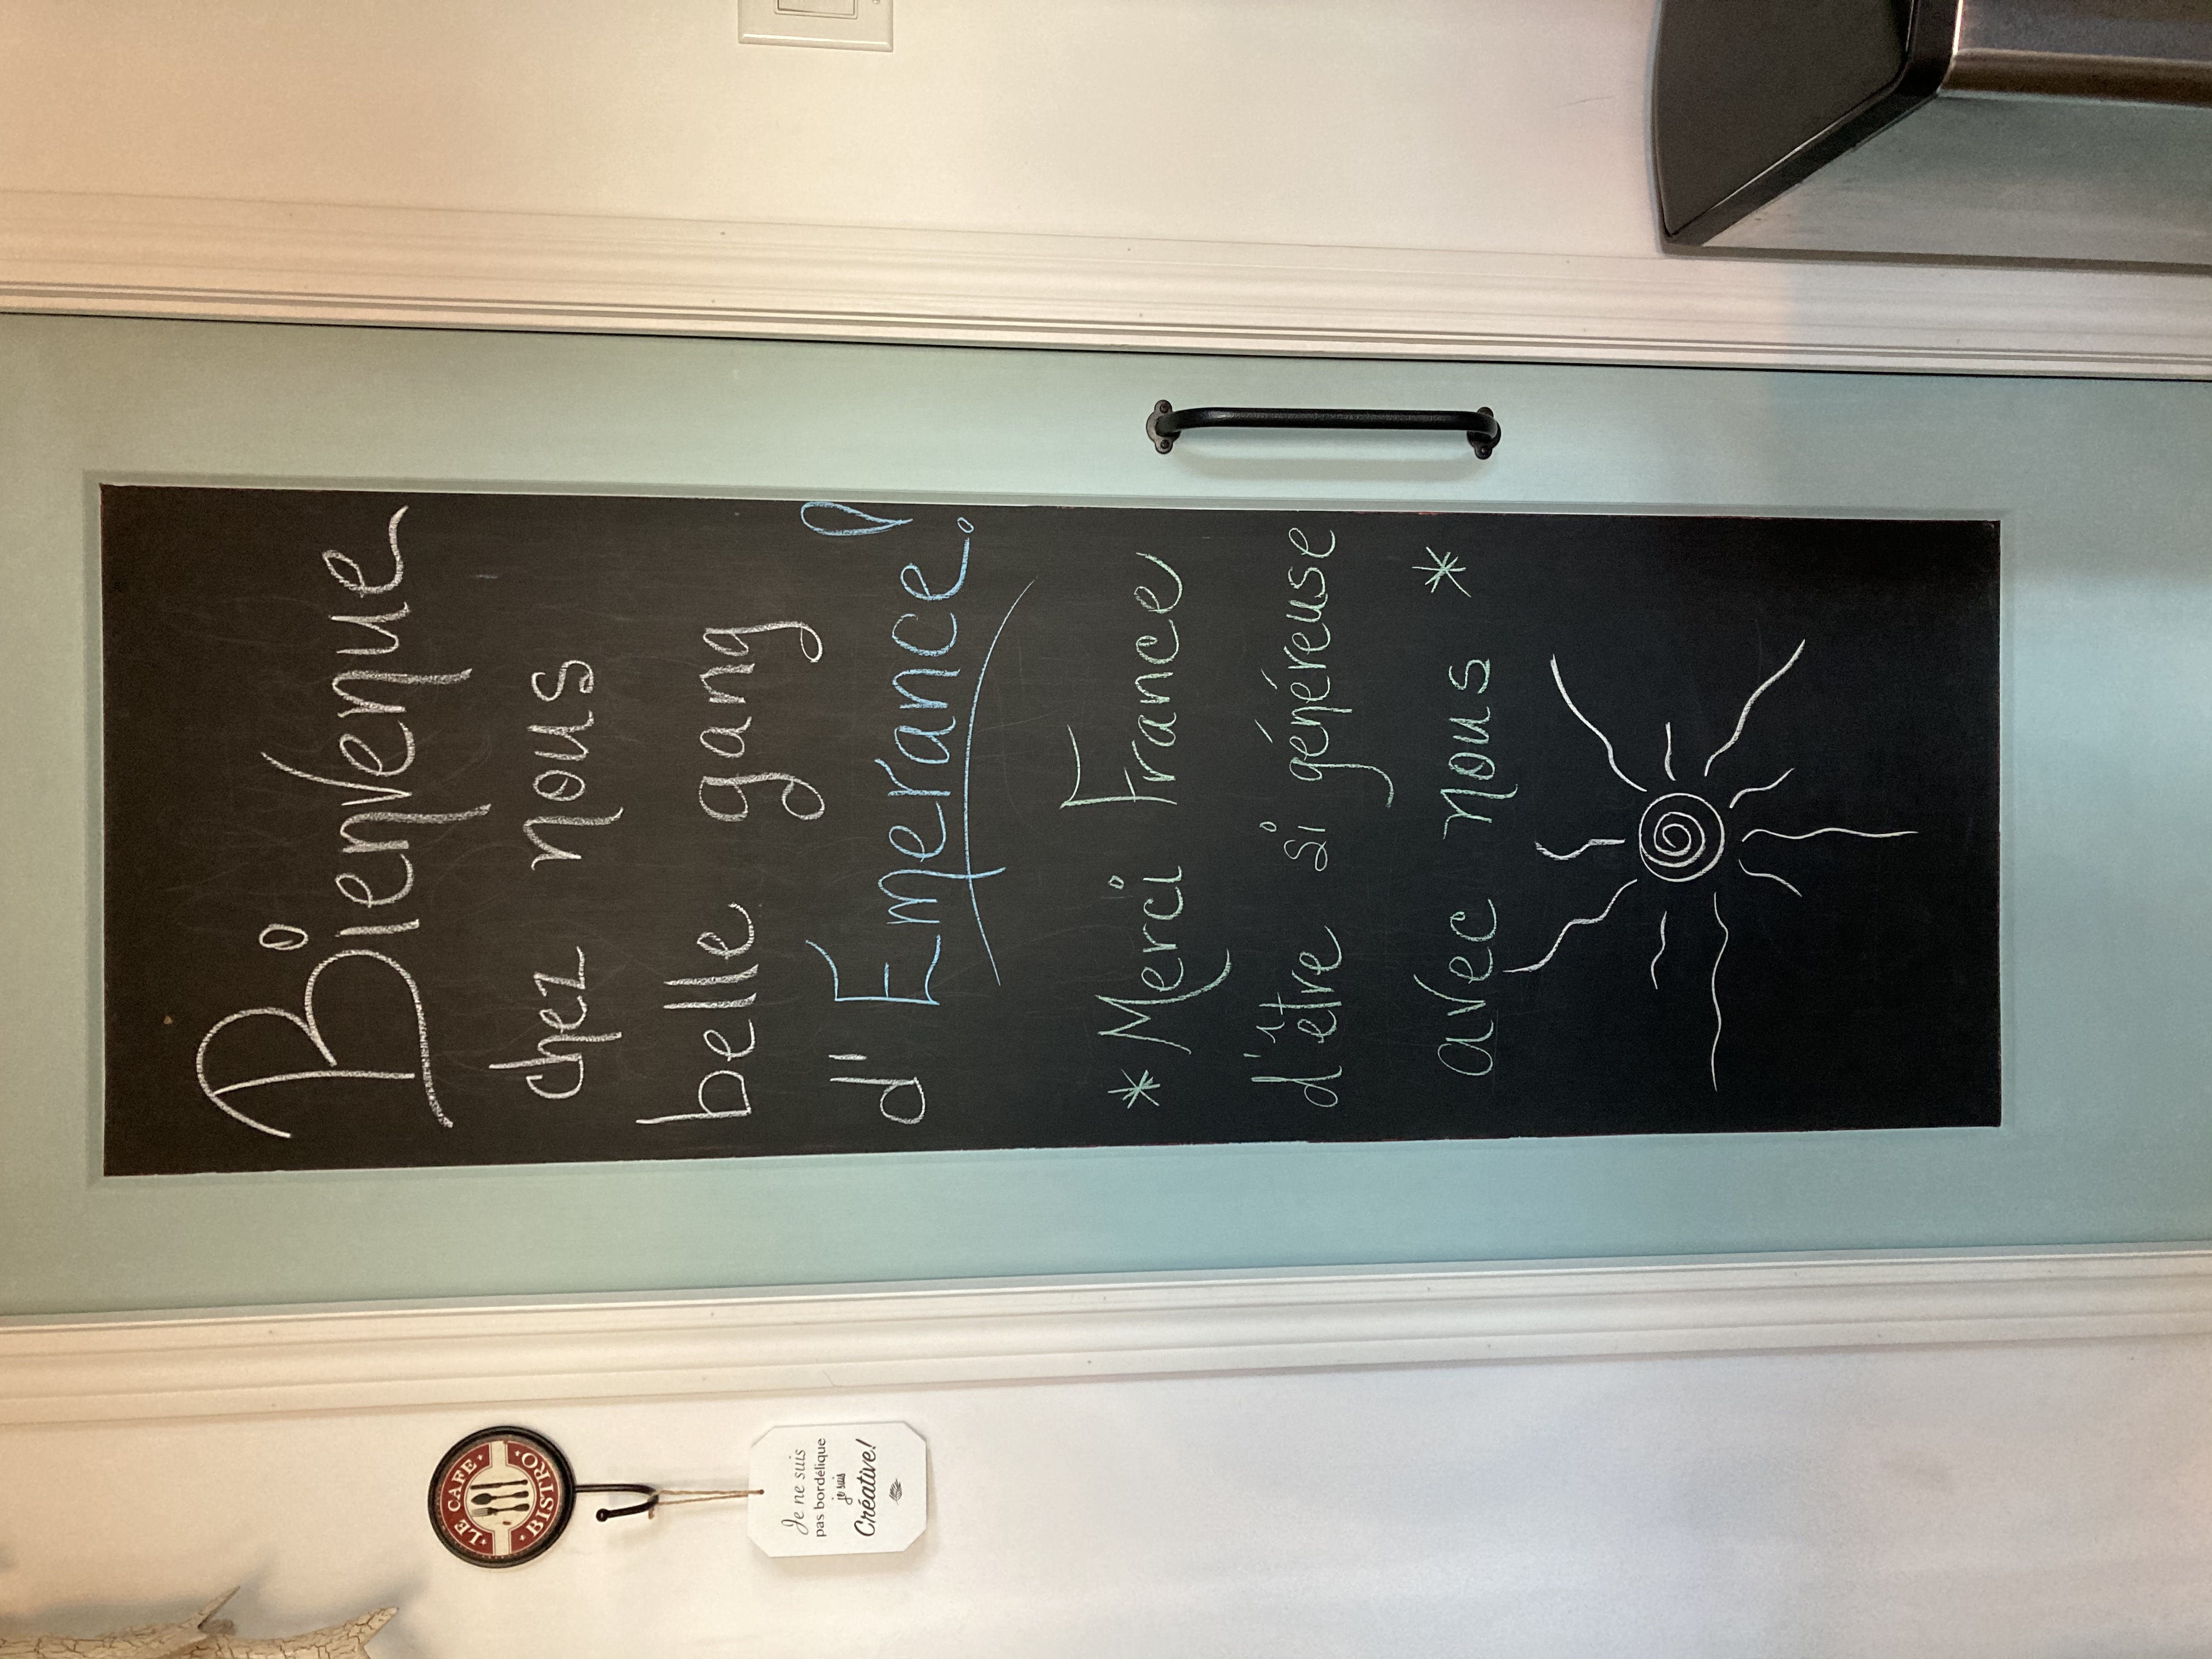 Bienvenue
chez nous
belle gang
d'Emerance!
* Merci France
d'être si généreuse
avec nous *
LE CAFE
BISTRO
Je ne suis
pas bordélique
je suis
Créative!